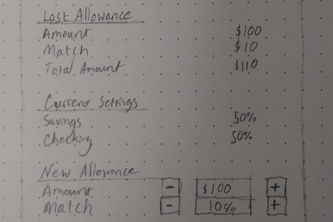 Last Allowance
Amount $100
Match $10
Total Amount $110
Current Settings
Savings 50%
Checking 50%
New Allowance
Amount - $100 +
Match - 10% +